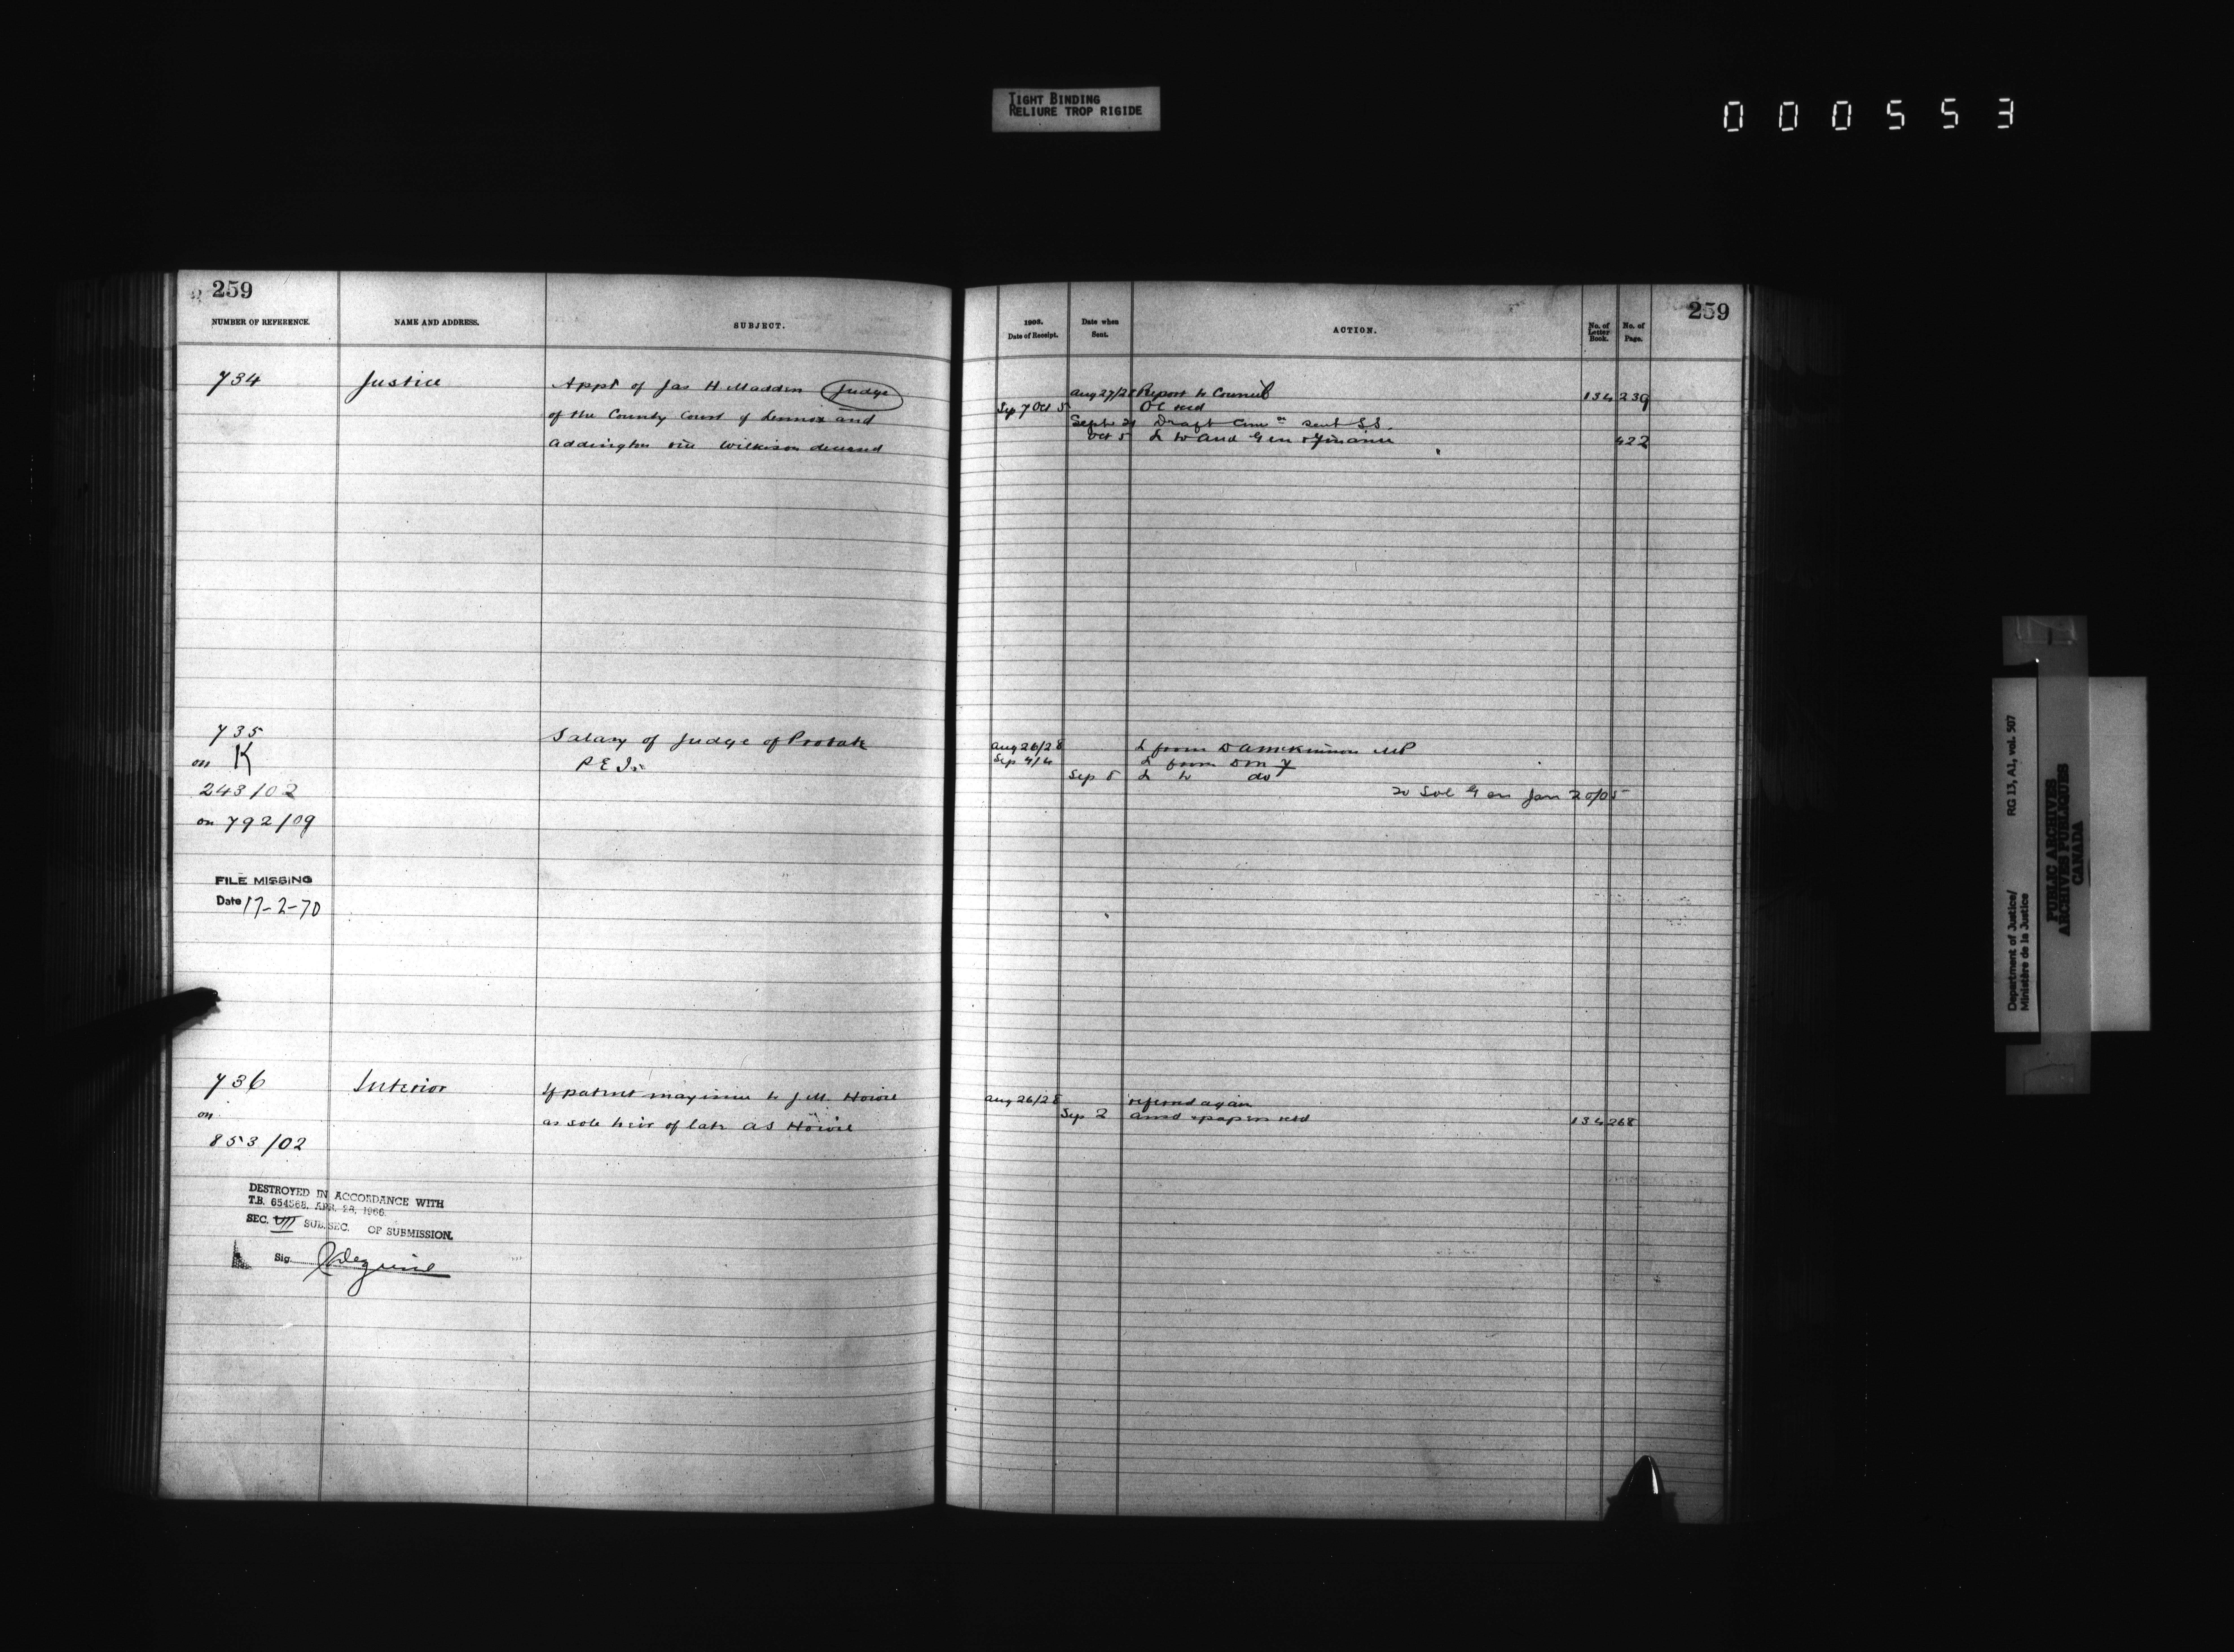 TIGHT BINDING
RELIURE TROP RIGIDE
000553
259
NUMBER OF REFERENCE.
NAME AND ADDRESS.
SUBJECT.
734
Justice
Appt of Jas H Madden Judge
of the County Court of Lennox and
Addington vice Wilkison deceased
735
on K
243/02
on 792/09
Salary of Judge of Probate
P E I.
FILE MISSING
Date 17-2-70
736
on
853/02
Interior
If patent may issue to J.M. Howie
as sole heir of late A S Howie
DESTROYED IN ACCORDANCE WITH
T.B. 654568, APR. 28, 1966
SEC. VII SUB. SEC. OF SUBMISSION.
Sig.
259
1903.
Date of Receipt.
Date when
Sent.
ACTION.
No. of
Letter
Book.
No. of
Page.
Aug 27/28 Report to Council 134 239
Sep 7 Oct 5 OC recd
Sept 21 Draft Comn sent SS.
Oct 5 L to Aud Gen & Finance 422
Aug 26/28 L from D A McKinnon MP
Sep 4/4 L from
Sep 8 L to do
To Sol Gen Jan 20/05
Aug 26/28 referred again
Sep 2 ansd & papers retd 134 268
Department of Justice/
Ministère de la Justice
RG 13, A1, vol. 507
PUBLIC ARCHIVES
ARCHIVES PUBLIQUES
CANADA